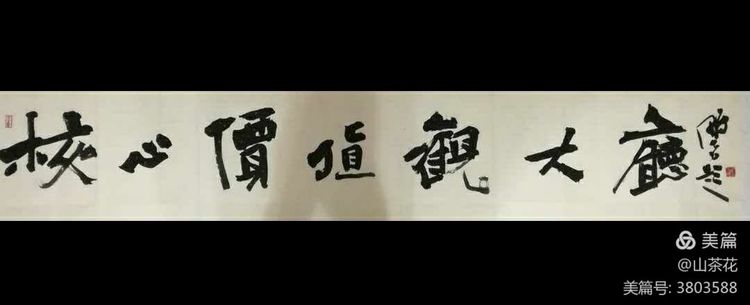 核心價值觀大廳
美篇
@山茶花
美篇号: 3803588